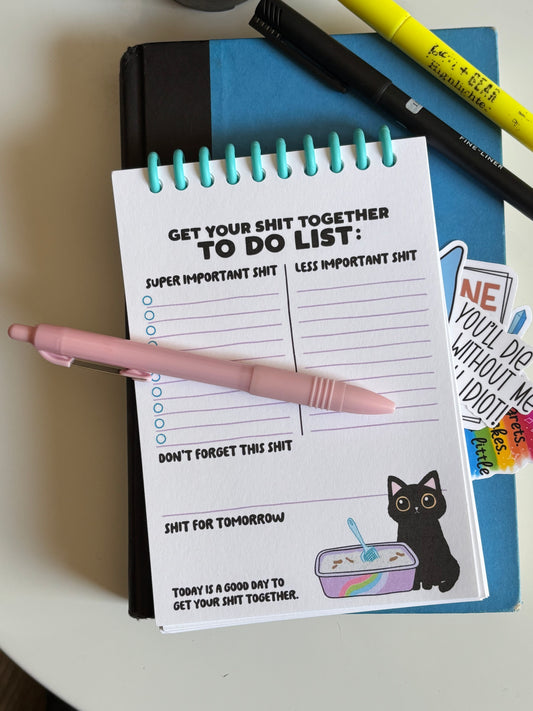 + GEAR
Highlighter
FINE-LINER
GET YOUR SHIT TOGETHER
TO DO LIST:
SUPER IMPORTANT SHIT
LESS IMPORTANT SHIT
DON'T FORGET THIS SHIT
SHIT FOR TOMORROW
TODAY IS A GOOD DAY TO
GET YOUR SHIT TOGETHER.
NE
YOU'LL DIE
WITHOUT ME
IDIOT!
little